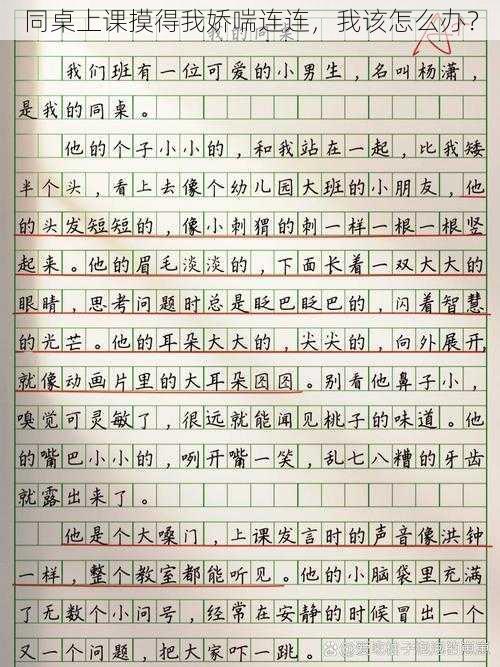 同桌上课摸得我娇喘连连，我该怎么办？
我的同桌
我们班有一位可爱的小男生，名叫杨潇，
是我的同桌。
他的个子小小的，和我站在一起，比我矮
半个头，看上去像个幼儿园大班的小朋友，他
的头发短短的，像小刺猬的刺一样一根一根竖
起来。他的眉毛淡淡的，下面长着一双大大的
眼睛，思考问题时总是眨巴眨巴的，闪着智慧
的光芒。他的耳朵大大的，尖尖的，向外展开，
就像动画片里的大耳朵图图。别看他鼻子小，
嗅觉可灵敏了，很远就能闻见桃子的味道。他
的嘴巴小小的，咧开嘴一笑，乱七八糟的牙齿
就露出来了。
他是个大嗓门，上课发言时的声音像洪钟
一样，整个教室都能听见。他的小脑袋里充满
了无数个小问号，经常在安静的时候冒出一个
又一个问题，把大家吓一跳。